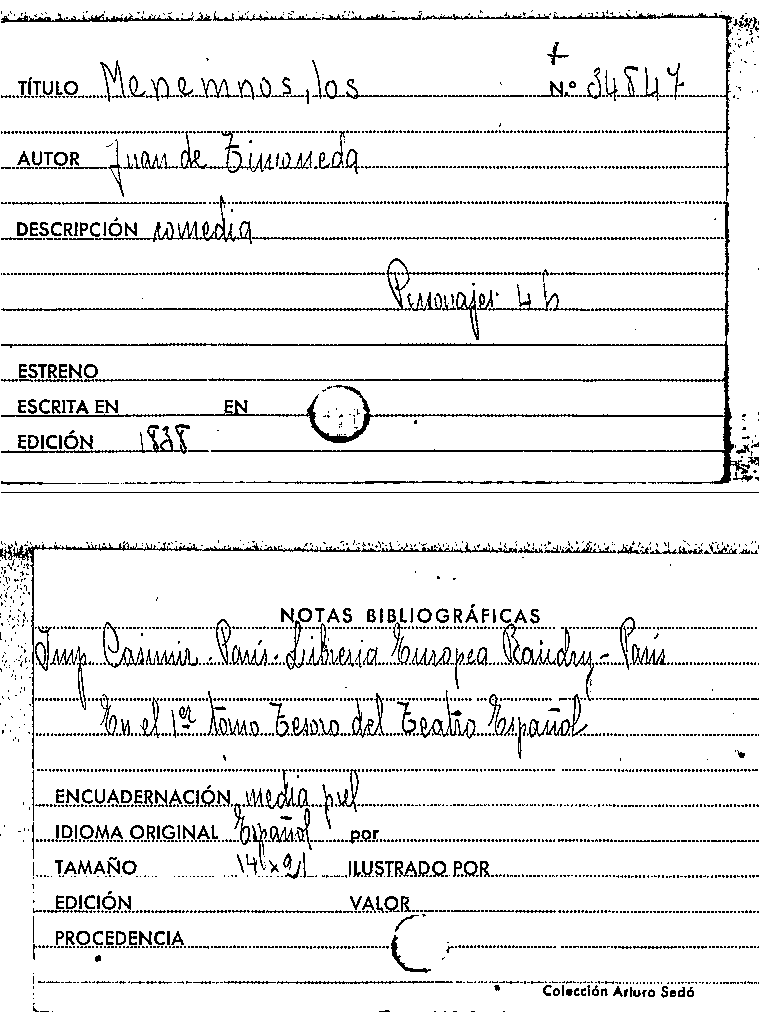 +
TÍTULO Menemnos, los N.º 34847
AUTOR Juan de Timoneda
DESCRIPCIÓN comedia
Personajes 4 h
ESTRENO
ESCRITA EN EN
EDICIÓN 1838
NOTAS BIBLIOGRÁFICAS
Imp Casimir - París - Librería Europea Baudry - París
En el 1er tomo Tesoro del Teatro Español
ENCUADERNACIÓN media piel
IDIOMA ORIGINAL Español por
TAMAÑO 14 x 21 ILUSTRADO POR
EDICIÓN VALOR
PROCEDENCIA
Colección Arturo Sedó